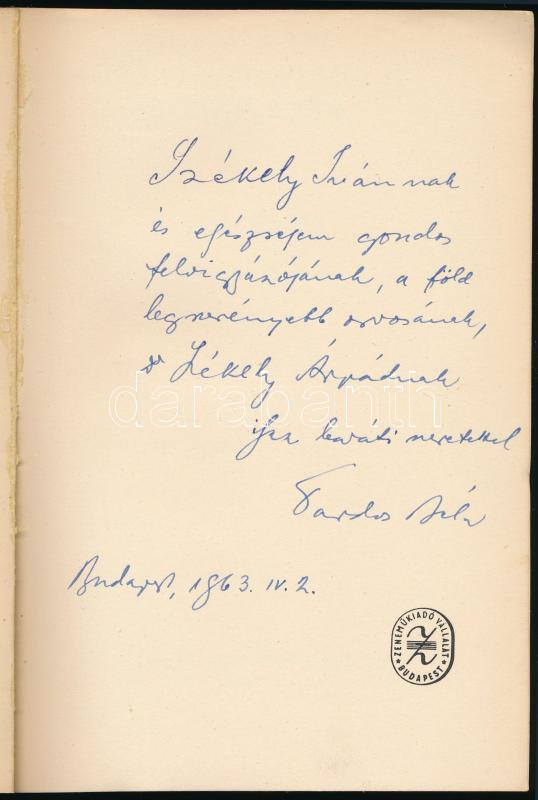 Székely Ivánnak
és egészségem gondos
felvigyázójának, a föld
legszerényebb orvosának,
dr Székely Árpádnak
igaz baráti szeretettel
Tardos Béla
Budapest, 1963. IV. 2.
darabanth
ZENEMŰKIADÓ VÁLLALAT
BUDAPEST